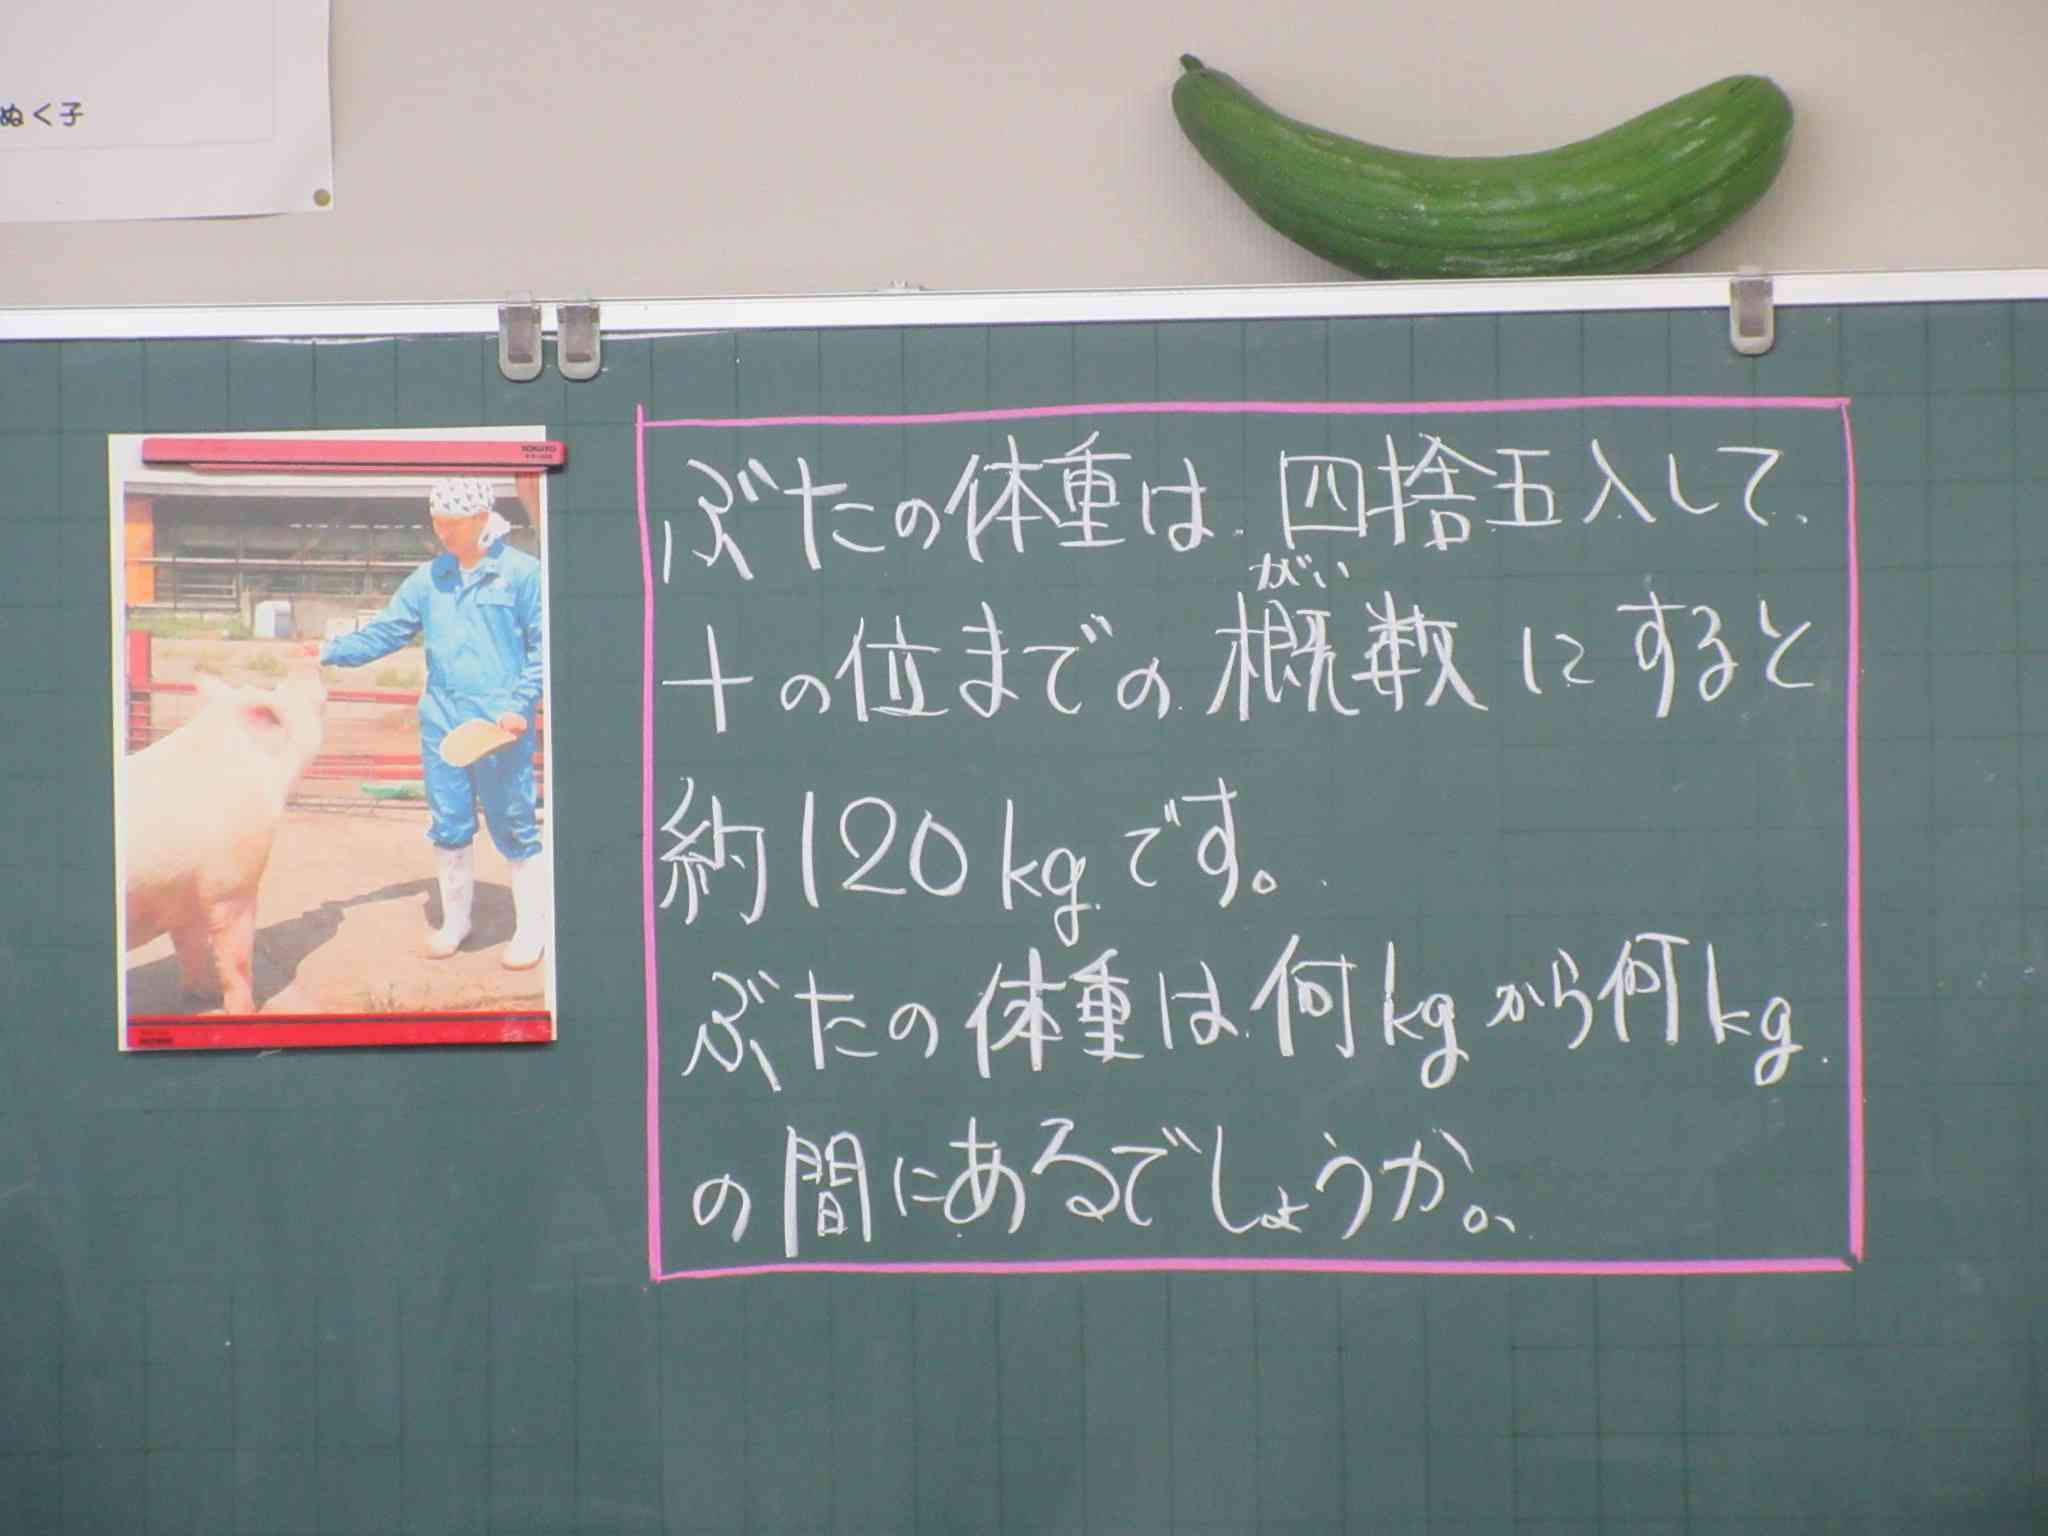 ぬく子
KOKUYO
ぶたの体重は、四捨五入して、
がい
十の位までの概数にすると
約120kgです。
ぶたの体重は何kgから何kg
の間にあるでしょうか。